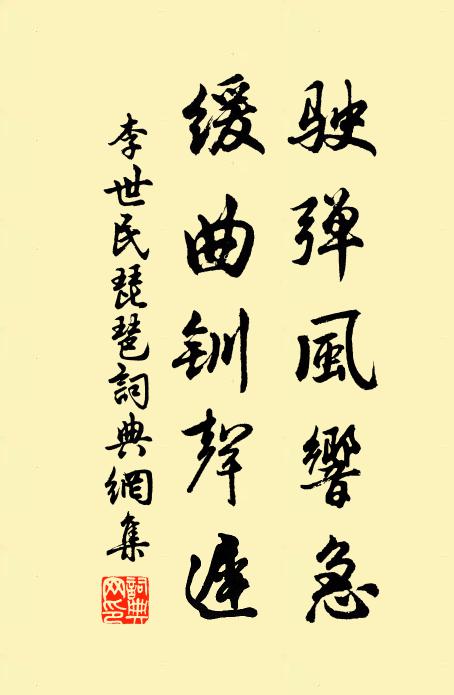 駛弹風響急
緩曲釧聲遲
李世民琵琶詞典網集
詞典网印